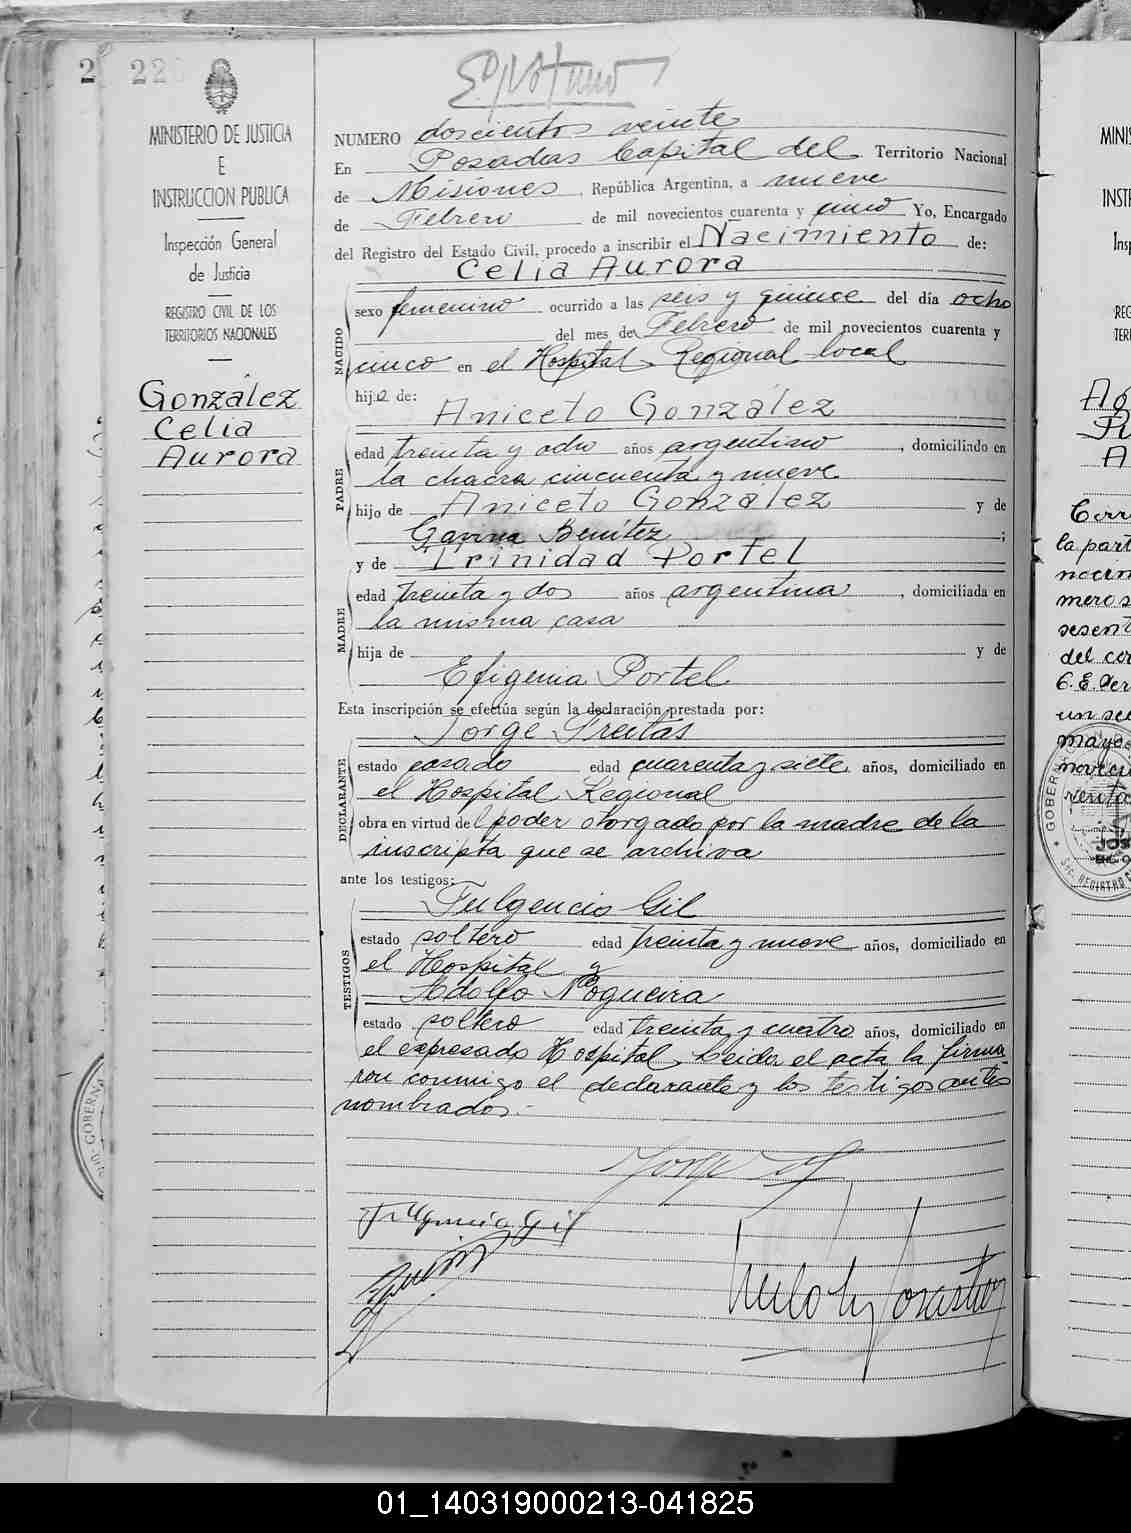 2 220
MINISTERIO DE JUSTICIA
E
INSTRUCCION PUBLICA
Inspección General
de Justicia
REGISTRO CIVIL DE LOS
TERRITORIOS NACIONALES
González
Celia
Aurora
NUMERO doscientos veinte
En Posadas Capital del Territorio Nacional
de Misiones, República Argentina, a nueve
de Febrero de mil novecientos cuarenta y cinco Yo, Encargado
del Registro del Estado Civil, procedo a inscribir el Nacimiento de:
Celia Aurora
NACIDO
sexo femenino ocurrido a las seis y quince del día ocho
del mes de Febrero de mil novecientos cuarenta y
cinco en el Hospital Regional local
hija de:
Aniceto González
PADRE
edad treinta y ocho años argentino, domiciliado en
la chacra cincuenta y nueve
hijo de Aniceto González y de
Gavina Benítez;
y de Trinidad Portel
MADRE
edad treinta y dos años argentina, domiciliada en
la misma casa
hija de y de
Efigenia Portel
Esta inscripción se efectúa según la declaración prestada por:
Jorge Freitas
DECLARANTE
estado casado edad cuarenta y siete años, domiciliado en
el Hospital Regional
obra en virtud del poder otorgado por la madre de la
inscripta que se archiva
ante los testigos:
Fulgencio Gil
TESTIGOS
estado soltero edad treinta y nueve años, domiciliado en
el Hospital y
Adolfo Nogueira
estado soltero edad treinta y cuatro años, domiciliado en
el expresado Hospital. Leida el acta la firma-
ron conmigo el declarante y los testigos antes
nombrados.-
Fulgencio Gil
MINIS
INSTR
Insp
REG
TERR
la part
mero s
del cer
un sei
mayo
GOBER
JOS
01_140319000213-041825